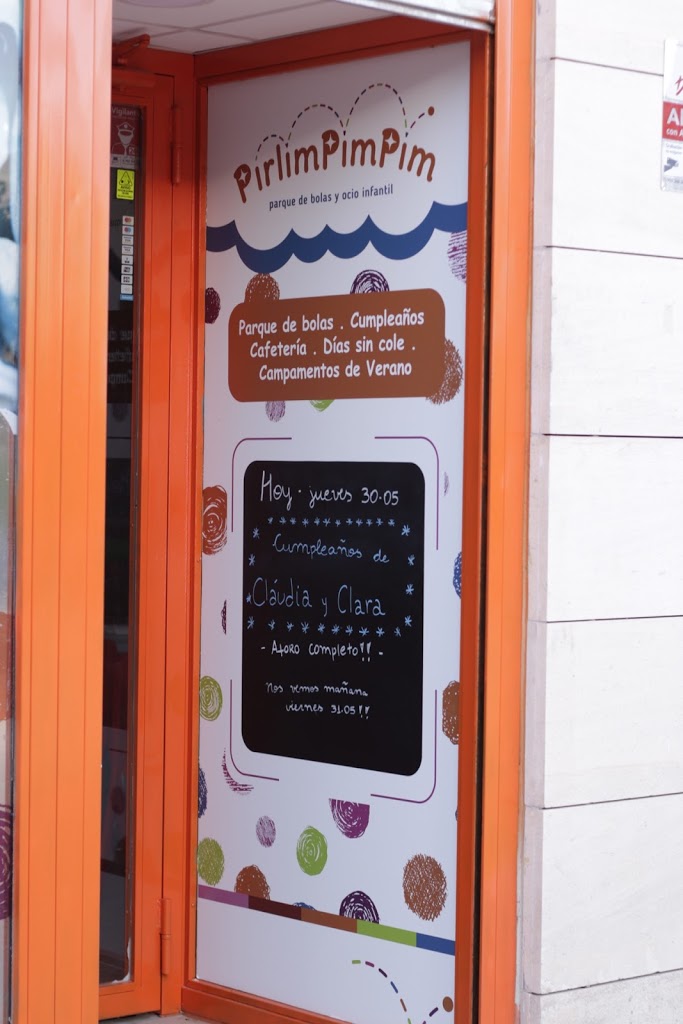 PirlimPimPim
parque de bolas y ocio infantil
Parque de bolas . Cumpleaños
Cafetería . Días sin cole .
Campamentos de Verano
Hoy · jueves 30·05
Cumpleaños de
Cláudia y Clara
- Aforo completo!! -
Nos vemos mañana
viernes 31·05!!
Vigilan